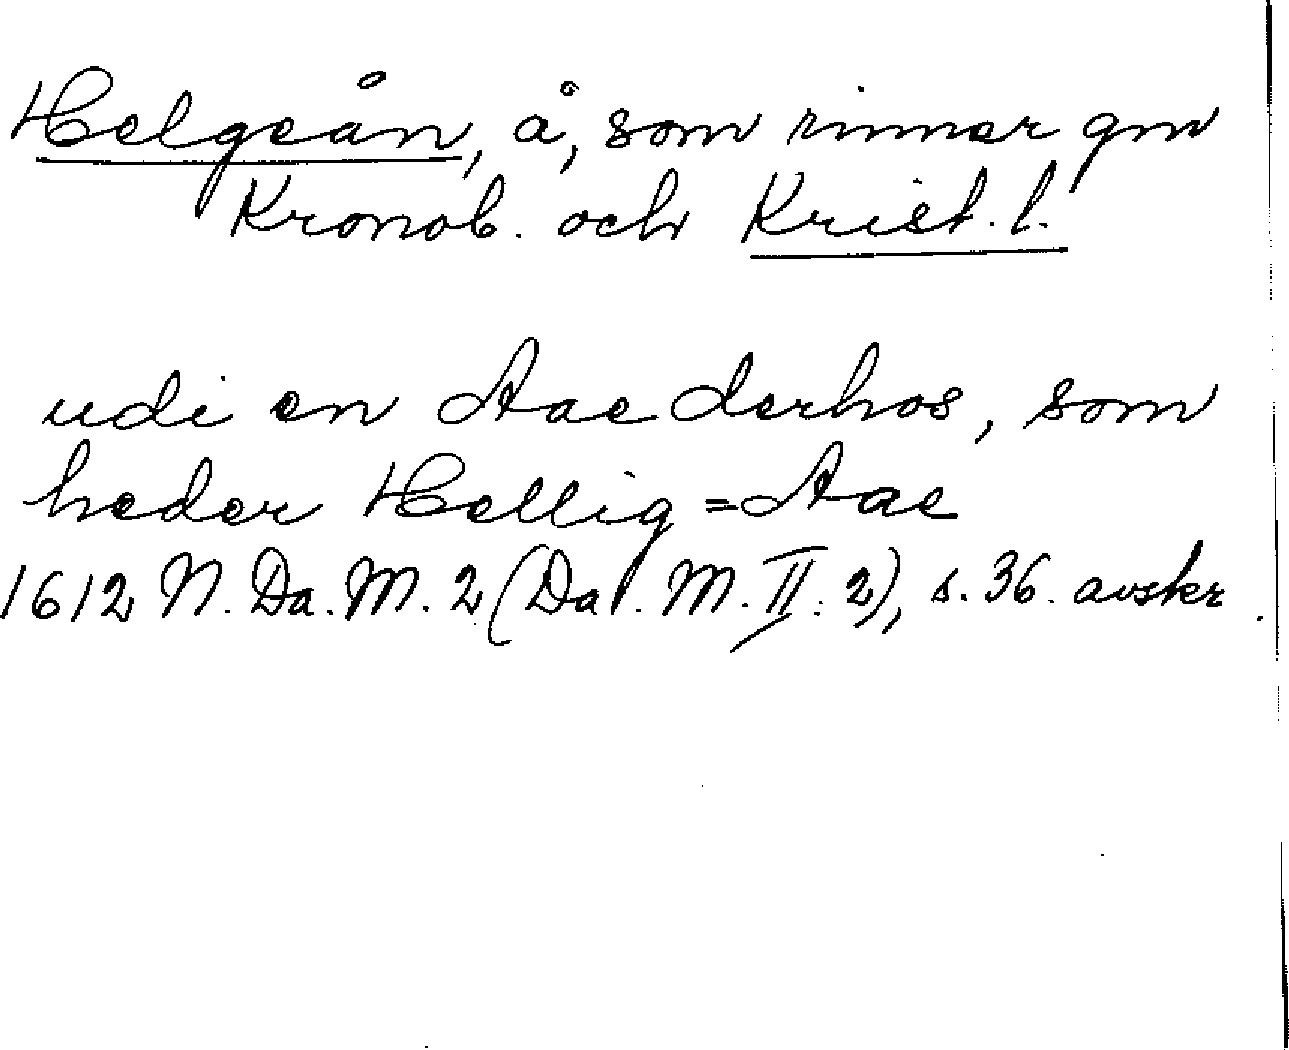 Helgeån, å, som rinner gm
Kronob. och Krist. l.
udi en Aae derhos, som
heder Hellig=Aae
1612 N. Da. M. 2 (Da. M. II. 2), s. 36. avskr.